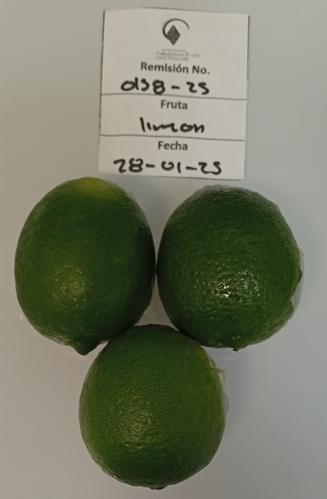 Remisión No.
058-25
Fruta
limon
Fecha
28-01-25